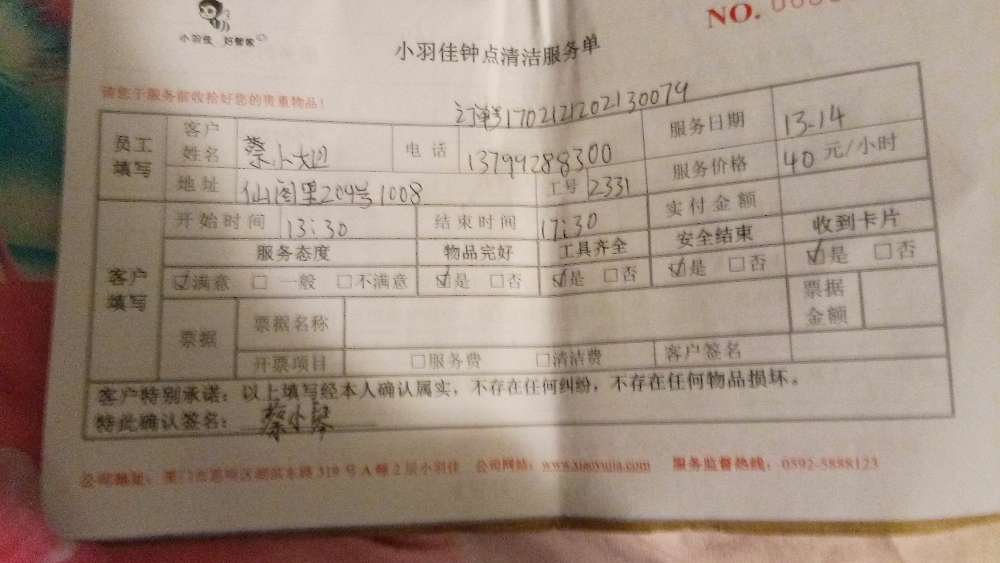 小羽佳 好管家
NO.
小羽佳钟点清洁服务单
请您于服务前收拾好您的贵重物品!
订单号1702121202130079
员工填写 客户姓名 蔡小姐 电话 13799288300 服务日期 13-14
地址 仙阁里209号1008 工号 2331 服务价格 40元/小时
客户填写 开始时间 13:30 结束时间 17:30 实付金额
服务态度 物品完好 工具齐全 安全结束 收到卡片
☑满意 □一般 □不满意 ☑是 □否 ☑是 □否 ☑是 □否 ☑是 □否
票据 票据名称 票据金额
开票项目 □服务费 □清洁费 客户签名
客户特别承诺：以上填写经本人确认属实，不存在任何纠纷，不存在任何物品损坏。
特此确认签名：蔡小琴
公司地址：厦门市思明区湖滨东路319号A幢2层小羽佳 公司网站：www.xiaoyujia.com 服务监督热线：0592-5888123